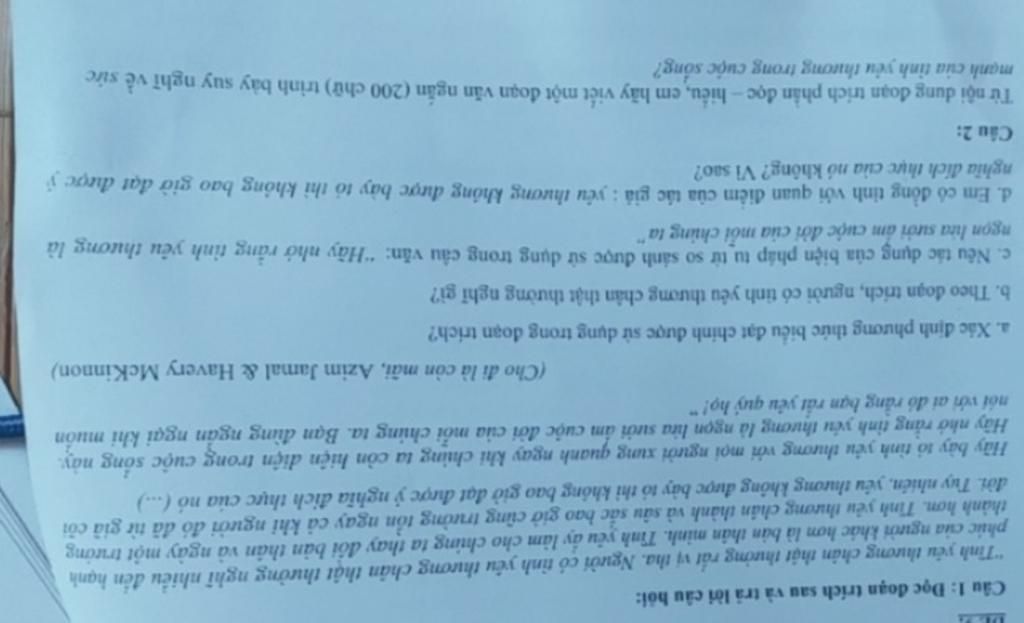 Câu 1: Đọc đoạn trích sau và trả lời câu hỏi:
"Tình yêu thương chân thật thường rất vị tha. Người có tình yêu thương chân thật thường nghĩ nhiều đến hạnh
phúc của người khác hơn là bản thân mình. Tình yêu ấy làm cho chúng ta thay đổi bản thân và ngày một trưởng
thành hơn. Tình yêu thương chân thành và sâu sắc bao giờ cũng trường tồn ngay cả khi người đó đã từ giã cõi
đời. Tuy nhiên, yêu thương không được bày tỏ thì không bao giờ đạt được ý nghĩa đích thực của nó (...)
Hãy bày tỏ tình yêu thương với mọi người xung quanh ngay khi chúng ta còn hiện diện trong cuộc sống này.
Hãy nhớ rằng tình yêu thương là ngọn lửa sưởi ấm cuộc đời của mỗi chúng ta. Bạn đừng ngần ngại khi muốn
nói với ai đó rằng bạn rất yêu quý họ!"
(Cho đi là còn mãi, Azim Jamal & Havery McKinnon)
a. Xác định phương thức biểu đạt chính được sử dụng trong đoạn trích?
b. Theo đoạn trích, người có tình yêu thương chân thật thường nghĩ gì?
c. Nêu tác dụng của biện pháp tu từ so sánh được sử dụng trong câu văn: "Hãy nhớ rằng tình yêu thương là
ngọn lửa sưởi ấm cuộc đời của mỗi chúng ta"
d. Em có đồng tình với quan điểm của tác giả : yêu thương không được bày tỏ thì không bao giờ đạt được ý
nghĩa đích thực của nó không? Vì sao?
Câu 2:
Từ nội dung đoạn trích phần đọc – hiểu, em hãy viết một đoạn văn ngắn (200 chữ) trình bày suy nghĩ về sức
mạnh của tình yêu thương trong cuộc sống?